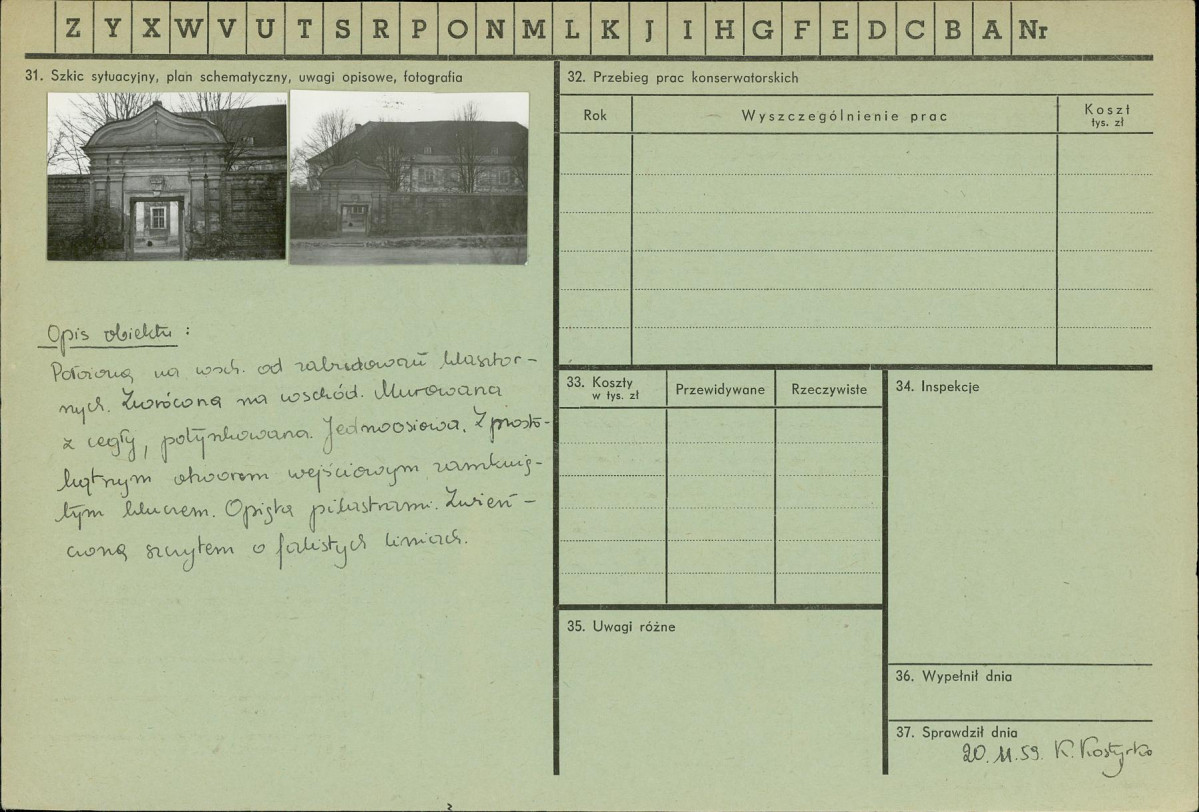 Z Y X W V U T S R P O N M L K J I H G F E D C B A Nr
31. Szkic sytuacyjny, plan schematyczny, uwagi opisowe, fotografia
Opis obiektu :
Położona na wsch. od zabudowań klasztor-
nych. Zwrócona na wschód. Murowana
z cegły, potynkowana. Jednoosiowa. Z prosto-
kątnym otworem wejściowym zamknię-
tym kluczem. Opięta pilastrami. Zwień-
czona szczytem o falistych liniach.
32. Przebieg prac konserwatorskich
Rok
Wyszczególnienie prac
Koszt
tys. zł
33. Koszty
w tys. zł
Przewidywane
Rzeczywiste
34. Inspekcje
35. Uwagi różne
36. Wypełnił dnia
37. Sprawdził dnia
20. 11. 59. K. Kostyrko